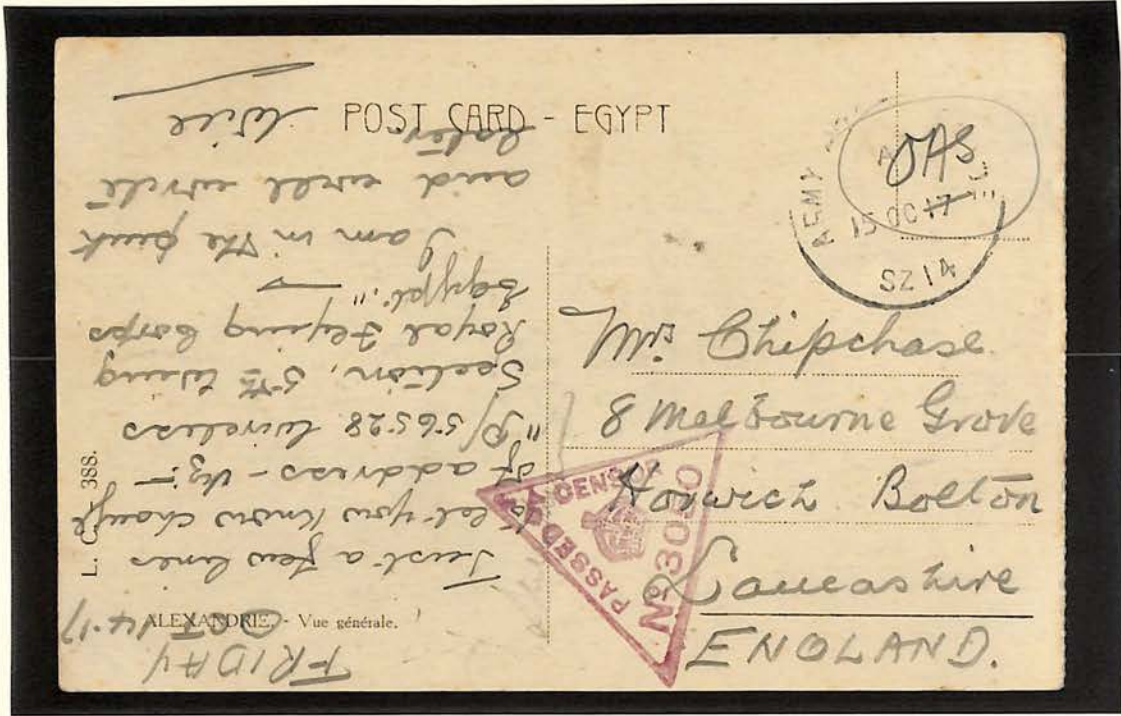 POST CARD - EGYPT
OAS
ARMY
15 OC 17
SZ14
Mrs Chipchase
8 Melbourne Grove
Horwich Bolton
Lancashire
ENGLAND.
PASSED BY CENSOR
No 3090
L. C. 388.
ALEXANDRIE. - Vue générale.
FRIDAY
OCT 14-17
Just a few lines
to let you know change
of address - viz:-
"P/56528 Wireless
Section, 5th Wing
Royal Flying Corps
Egypt."
I am in the pink
and will write
later
Will